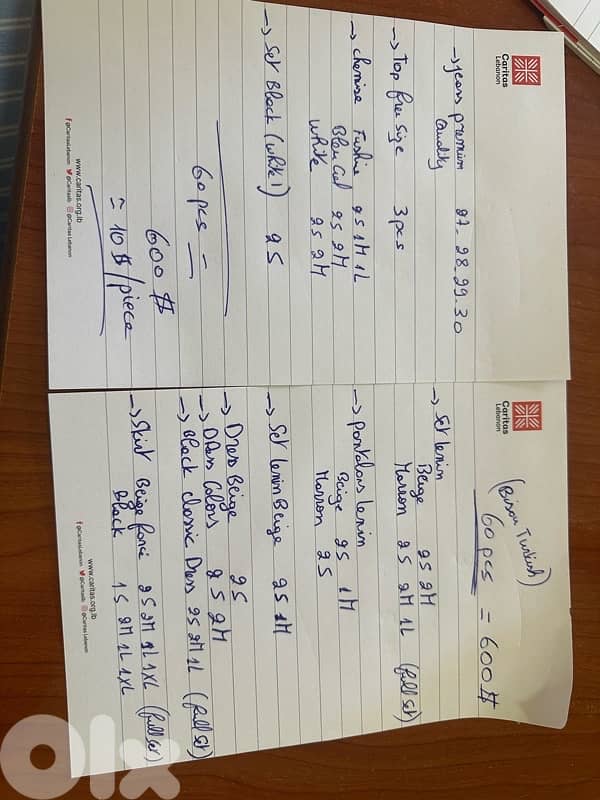 Caritas
Lebanon
→ jeans premium 27-28.29.30
quality
→ Top free size 3 pcs
→ chemise Fushia 2S 1M 1L
Bleu Ciel 2S 2M
White 2S 2M
→ Set Black (white!) 2S
60 pcs =
600 $
= 10 $ /piece
www.caritas.org.lb
@CaritasLebanon @Caritaslb @Caritas.Lebanon
Caritas
Lebanon
(Bison Turkish)
60 pcs = 600 $
→ Set Lenin
Beige 2S 2M
Marron 2S 2M 1L (full set)
→ pantalons Lenin
Beige 2S 1M
Marron 2S
→ Set Lenin Beige 2S 1M
→ Dress Beige 2S
→ Dress Colors 2S 2M
→ Black classic Dress 2S 2M 1L (full set)
→ Skirt Beige foncé 2S 2M 1L 1XL (full set)
Black 1S 2M 1L 1XL
www.caritas.org.lb
@CaritasLebanon @Caritaslb @Caritas.Lebanon
olx